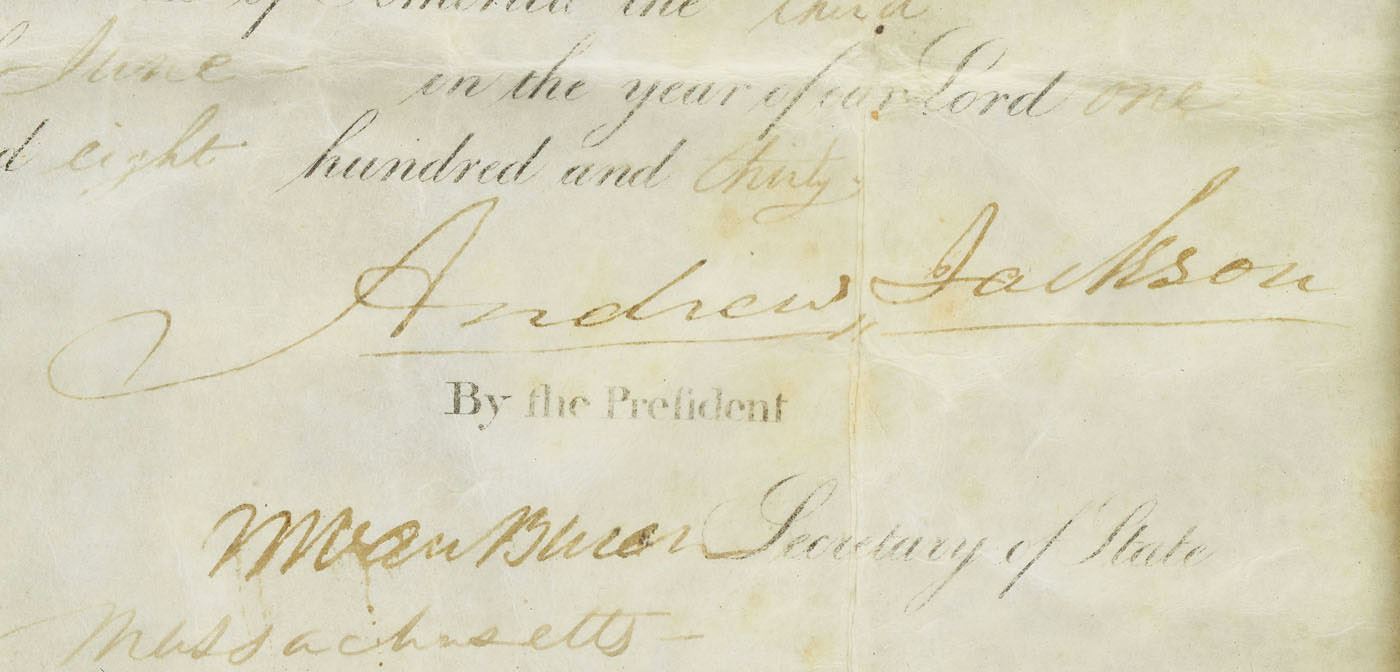 of America the third
June in the year of our Lord one
eight hundred and thirty.
Andrew Jackson
By the Preſident
M Van Buren Secretary of State
Massachusetts